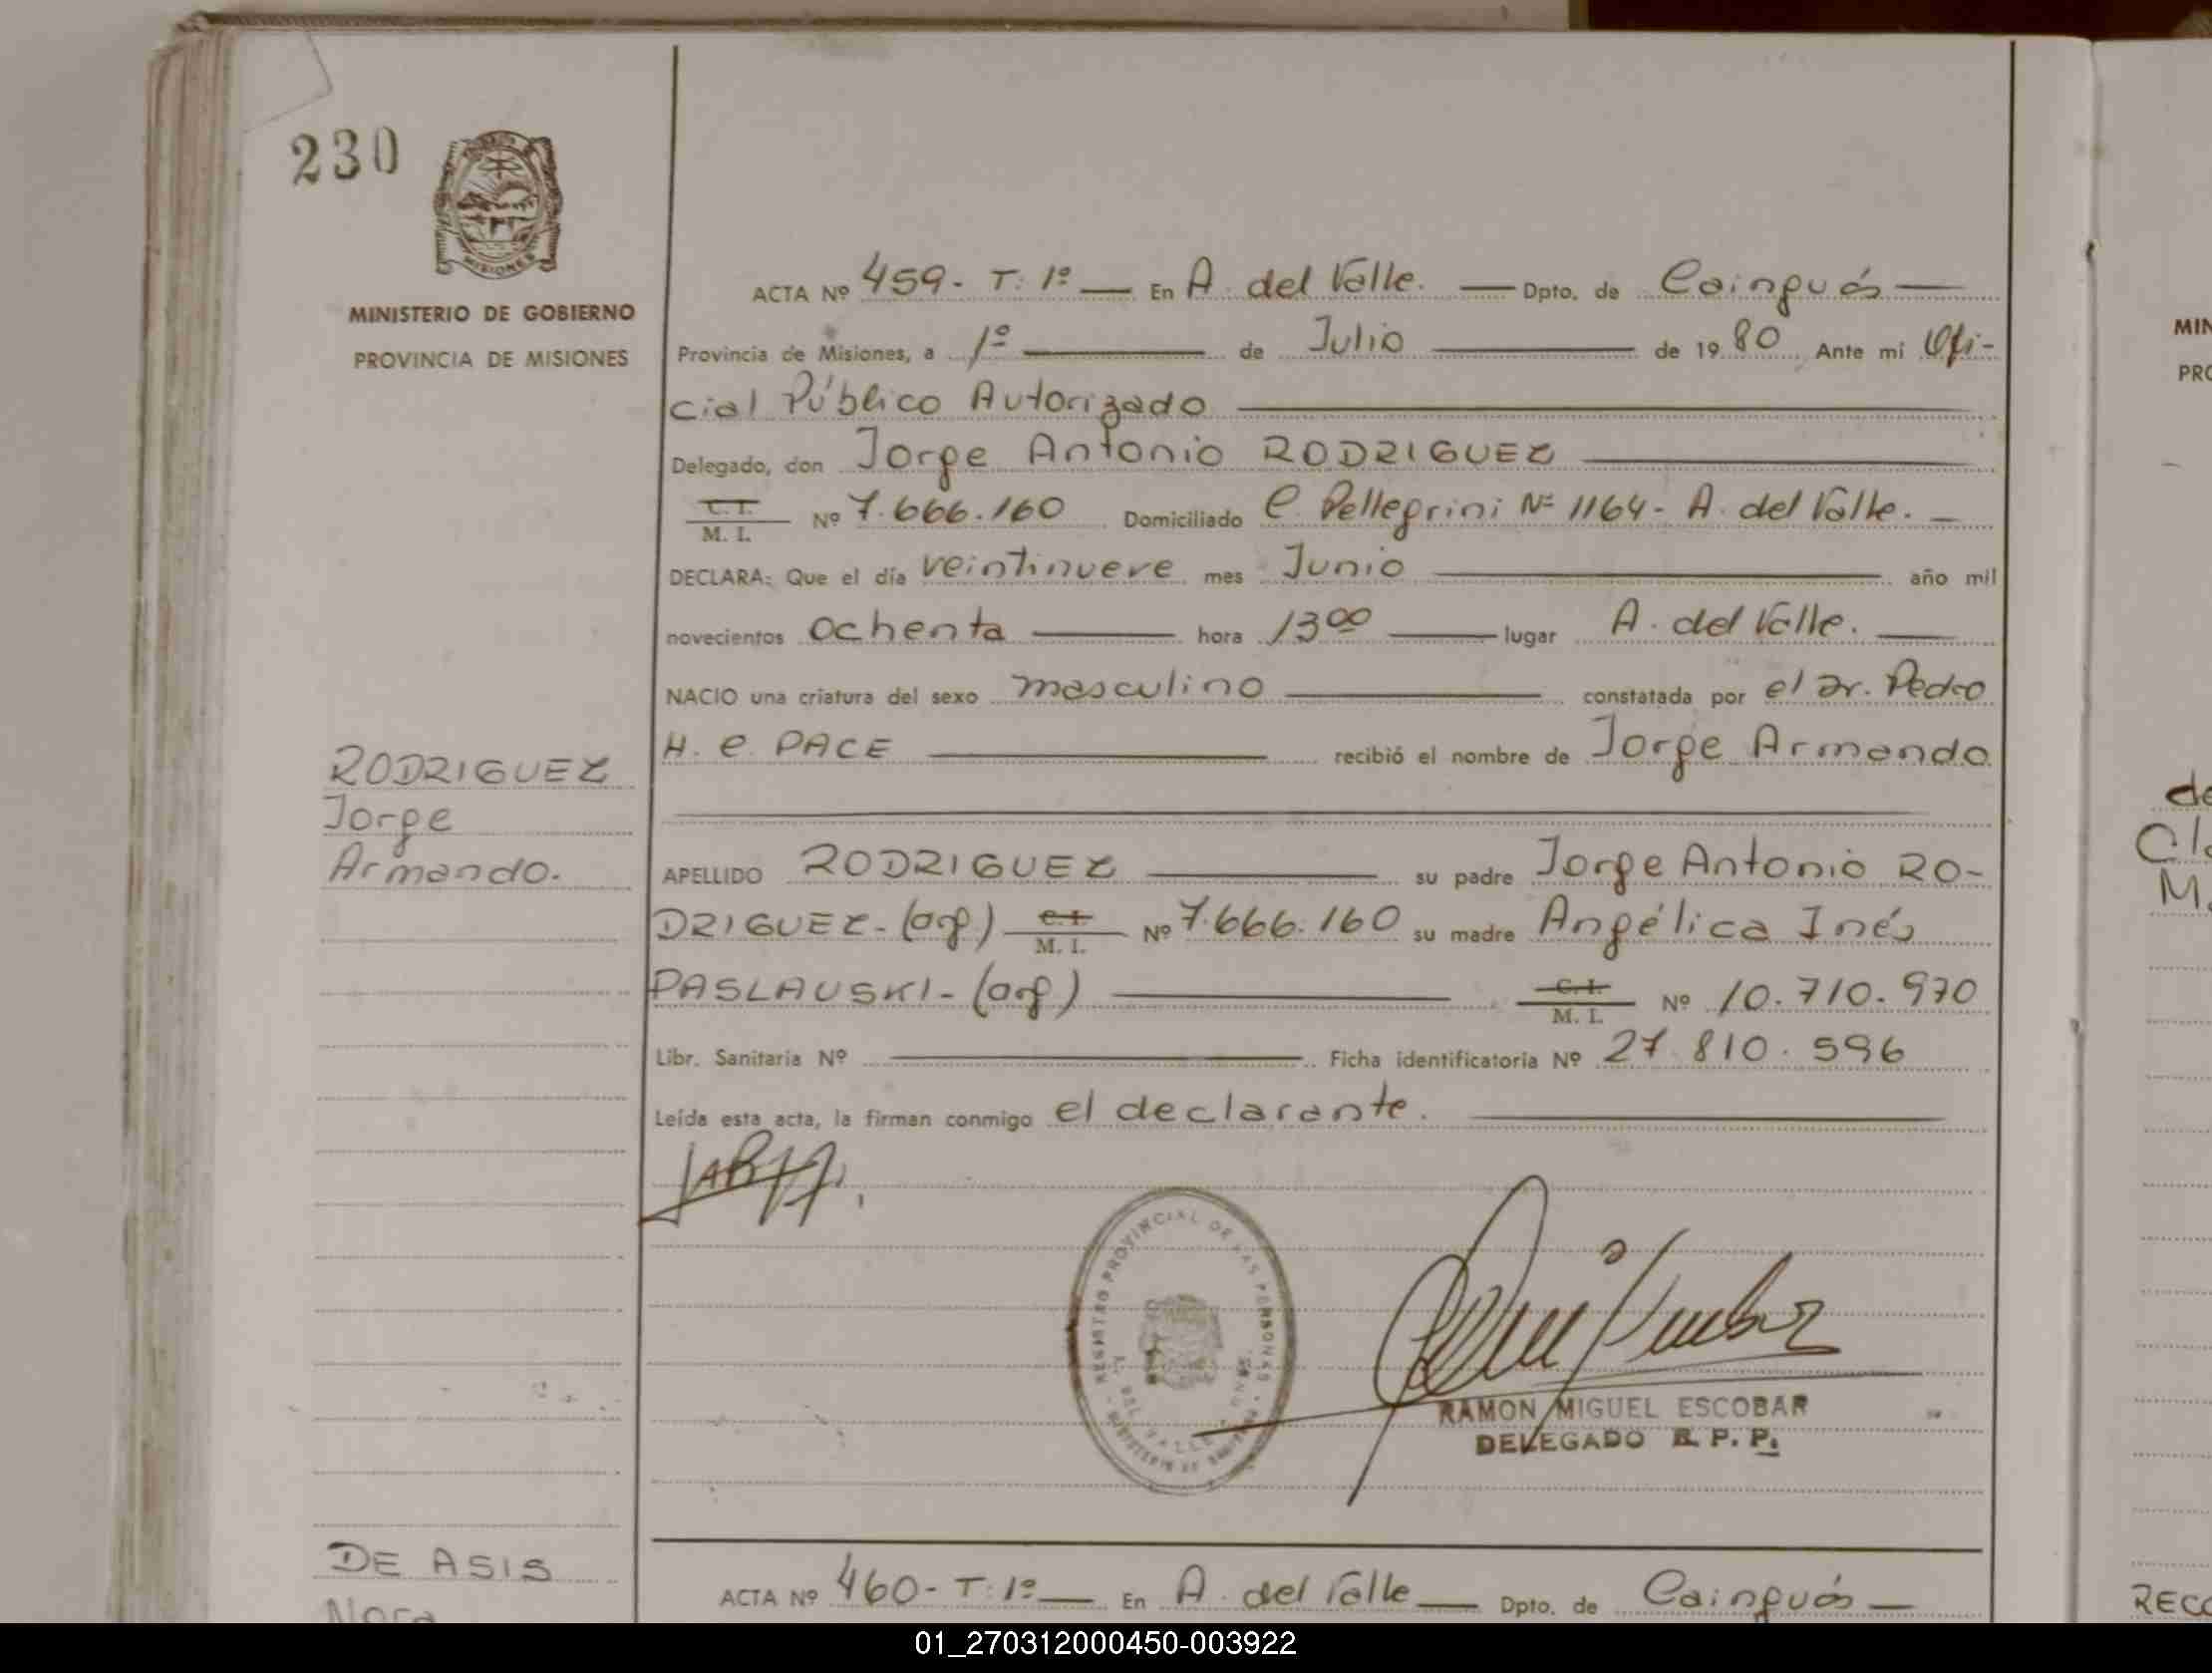 230
MISIONES
MINISTERIO DE GOBIERNO
PROVINCIA DE MISIONES
ACTA Nº 459- T: 1º — En A. del Valle. — Dpto. de Cainguás —
Provincia de Misiones, a 1º — de Julio — de 1980, Ante mi Ofi-
cial Público Autorizado
Delegado, don Jorge Antonio RODRIGUEZ
C.I.
M. I. Nº 7.666.160 Domiciliado C. Pellegrini Nº 1164- A. del Valle. —
DECLARA: Que el día veintinueve mes Junio — año mil
novecientos ochenta — hora 13⁰⁰ — lugar A. del Valle. —
NACIO una criatura del sexo masculino — constatada por el Dr. Pedro
H. C. PACE — recibió el nombre de Jorge Armando
RODRIGUEZ
Jorge
Armando.
APELLIDO RODRIGUEZ — su padre Jorge Antonio RO-
DRIGUEZ-(arg) C.I. M. I. Nº 7.666.160 su madre Angélica Inés
PASLAUSKI-(arg) — C.I. M. I. Nº 10.710.970
Libr. Sanitaria Nº — Ficha identificatoria Nº 27.810.596
Leída esta acta, la firman conmigo el declarante.
REGISTRO PROVINCIAL DE LAS PERSONAS
DEL VALLE
RAMON MIGUEL ESCOBAR
DELEGADO R. P. P.
DE ASIS
Nora
ACTA Nº 460- T: 1º — En A. del Valle — Dpto. de Cainguás —
MIN
PRO
de
M.
RECO
01_270312000450-003922